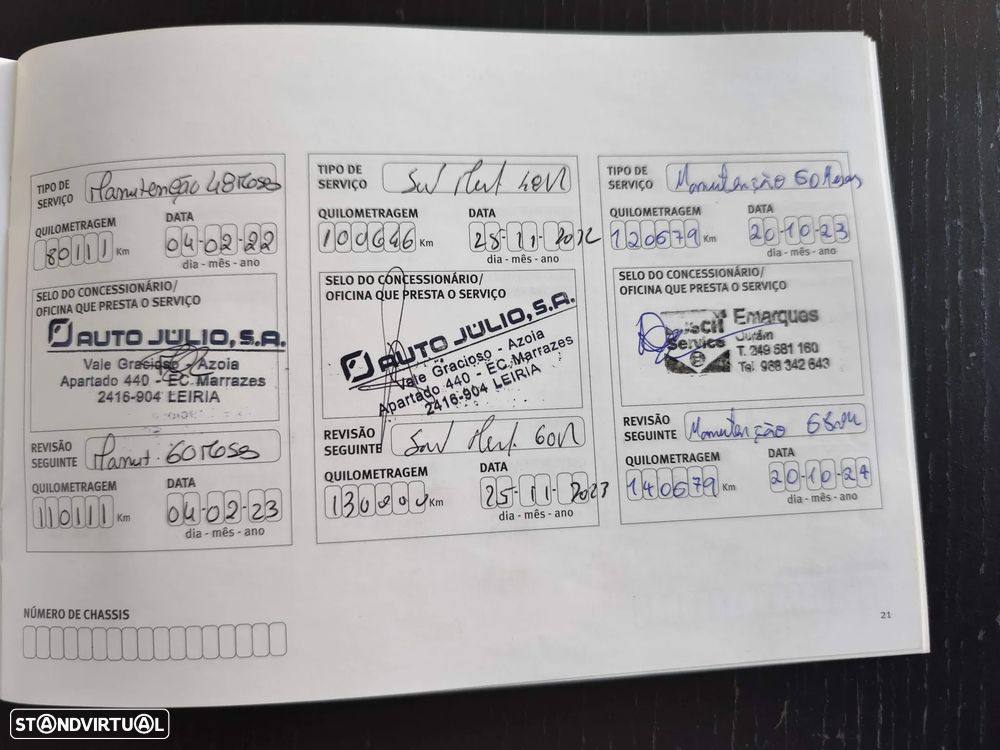 TIPO DE SERVIÇO Manutenção 48 Meses
QUILOMETRAGEM DATA
80111 Km 04-02-22
dia - mês - ano
SELO DO CONCESSIONÁRIO/
OFICINA QUE PRESTA O SERVIÇO
AUTO JÚLIO, S.A.
Vale Gracioso - Azoia
Apartado 440 - EC Marrazes
2416-904 LEIRIA
REVISÃO SEGUINTE Manut. 60 Meses
QUILOMETRAGEM DATA
110111 Km 04-02-23
dia - mês - ano
TIPO DE SERVIÇO
QUILOMETRAGEM DATA
100646 Km 25-11-2022
dia - mês - ano
SELO DO CONCESSIONÁRIO/
OFICINA QUE PRESTA O SERVIÇO
AUTO JÚLIO, S.A.
Vale Gracioso - Azoia
Apartado 440 - EC Marrazes
2416-904 LEIRIA
REVISÃO SEGUINTE 60M
QUILOMETRAGEM DATA
130000 Km 25-11-2023
dia - mês - ano
TIPO DE SERVIÇO Manutenção 60 Meses
QUILOMETRAGEM DATA
120679 Km 20-10-23
dia - mês - ano
SELO DO CONCESSIONÁRIO/
OFICINA QUE PRESTA O SERVIÇO
Emarques
Service
T. 249 581 160
Tel: 966 342 643
REVISÃO SEGUINTE Manutenção
QUILOMETRAGEM DATA
140679 Km 20-10-24
dia - mês - ano
NÚMERO DE CHASSIS
21
STANDVIRTUAL